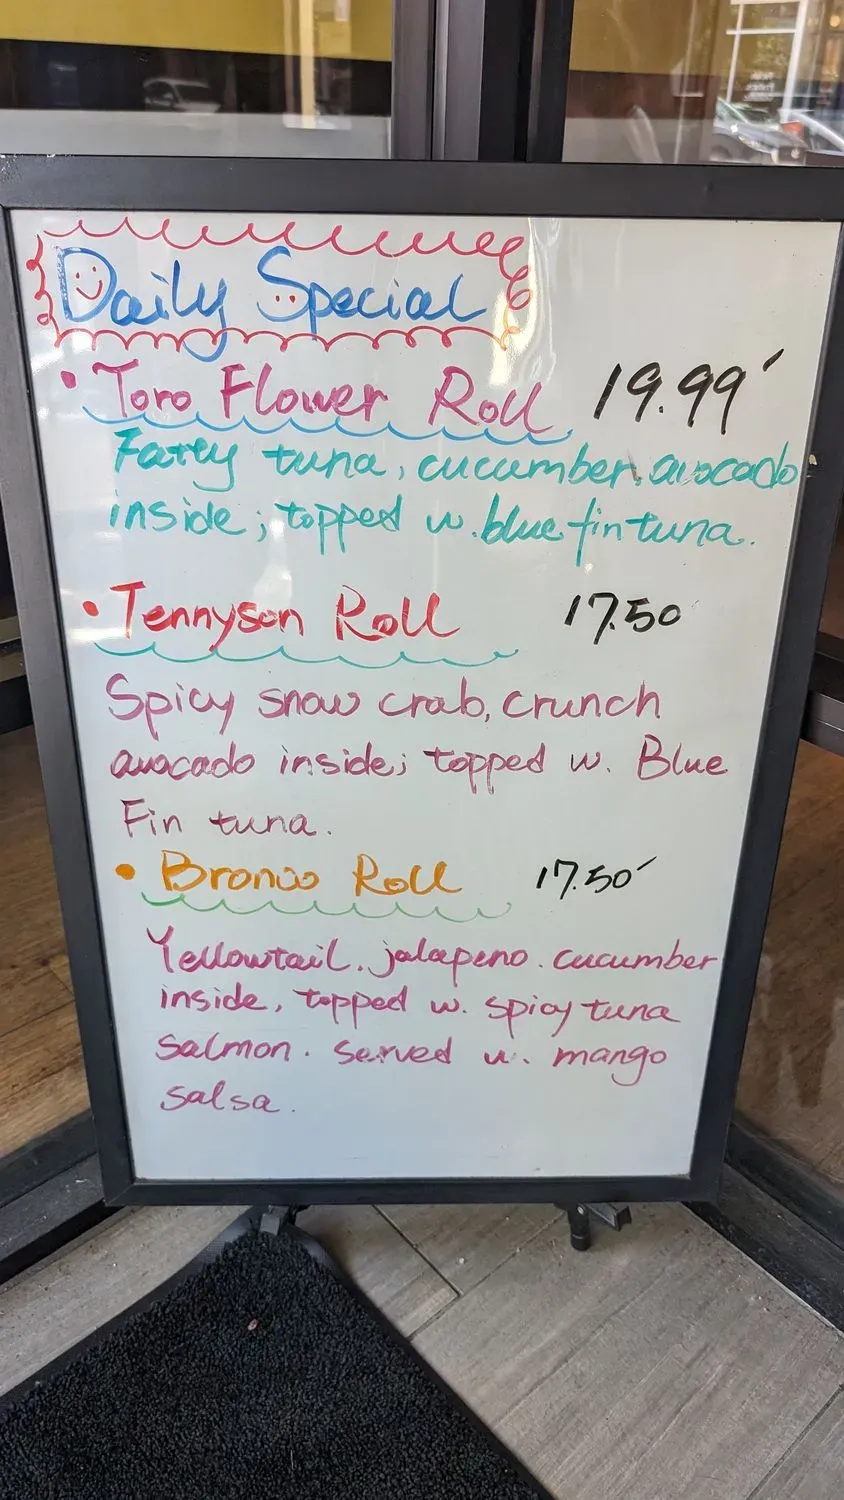 Daily Special
• Toro Flower Roll 19.99
Fatty tuna, cucumber, avocado
inside; topped w. blue fin tuna.
• Tennyson Roll 17.50
Spicy snow crab, crunch
avocado inside; topped w. Blue
Fin tuna.
• Bronco Roll 17.50
Yellowtail, jalapeno. cucumber
inside, topped w. spicy tuna
salmon. served w. mango
salsa.